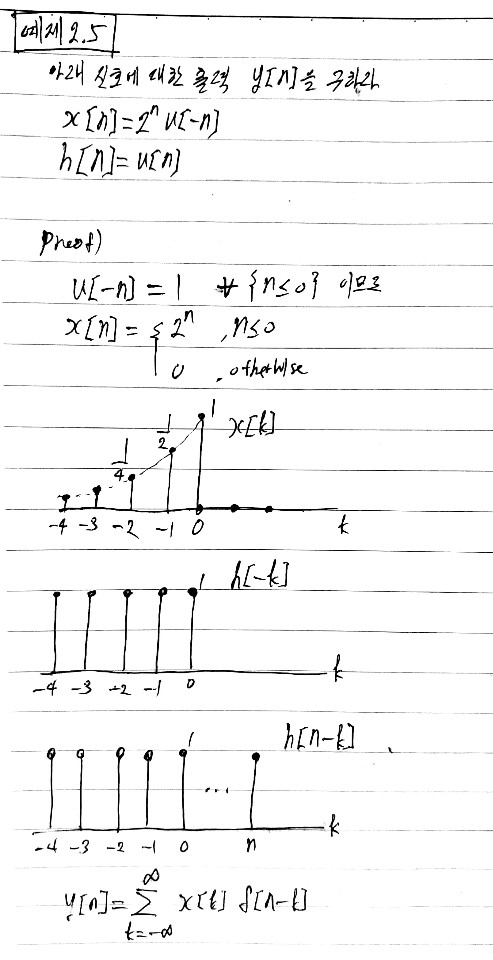 예제 2.5
아래 신호에 대한 출력 y[n]을 구하라
x[n]=2ⁿ u[-n]
h[n]=u[n]
proof)
u[-n] = 1 ∀ {n≤0} 이므로
x[n] = { 2ⁿ , n≤0
0 , otherwise
1/4 1/2 1 x[k]
-4 -3 -2 -1 0 k
1 h[-k]
-4 -3 -2 -1 0 k
1 ... h[n-k]
-4 -3 -2 -1 0 n k
y[n]=∑_{k=-∞}^{∞} x[k] δ[n-k]